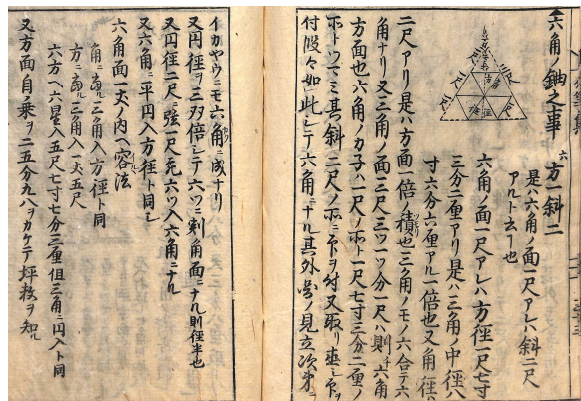 六角ノ鈾之事 六 方一斜二
是ハ六角ノ面一尺アレハ斜二尺
アルト云リ也
六角ノ面一尺アレハ方径一尺七寸
三分二厘アリ是ハ三角ノ中径八
寸六分六厘アル一倍也又角ノ径ハ
二尺アリ是ハ方面一倍ノ積也三角ノモノ六合テ六
角ナリ又三角ノ面三尺三ツニ分一尺ハ則チ六角
方面也六角ノカ子ハ一尺ノホト一尺七寸三分二厘ノ
ホトツモミ其斜二尺ノホニ下ヲ付又取リ直シ下ヲ
付段々如此シテ六角ニナル其外学ノ見立次第ニ
イカヤウニモ六角ニ成ナリ
又円径ヲ三双倍シテ六ツニ刺角面ニナル則径半也
又円径二尺ニ弦一尺充六ツ入六角ニナル
又六角ニ平円入方径ト同シ
六角面一丈ノ内ヘ容法
角ニ當ル三角入方径ト同
方ニ當ル三角入一丈五尺
六方ヘ六星入五尺七寸七分三厘但三角ニ円入ト同
又方面自乗ヲ二五分九八ヲカケテ坪数ヲ知ル